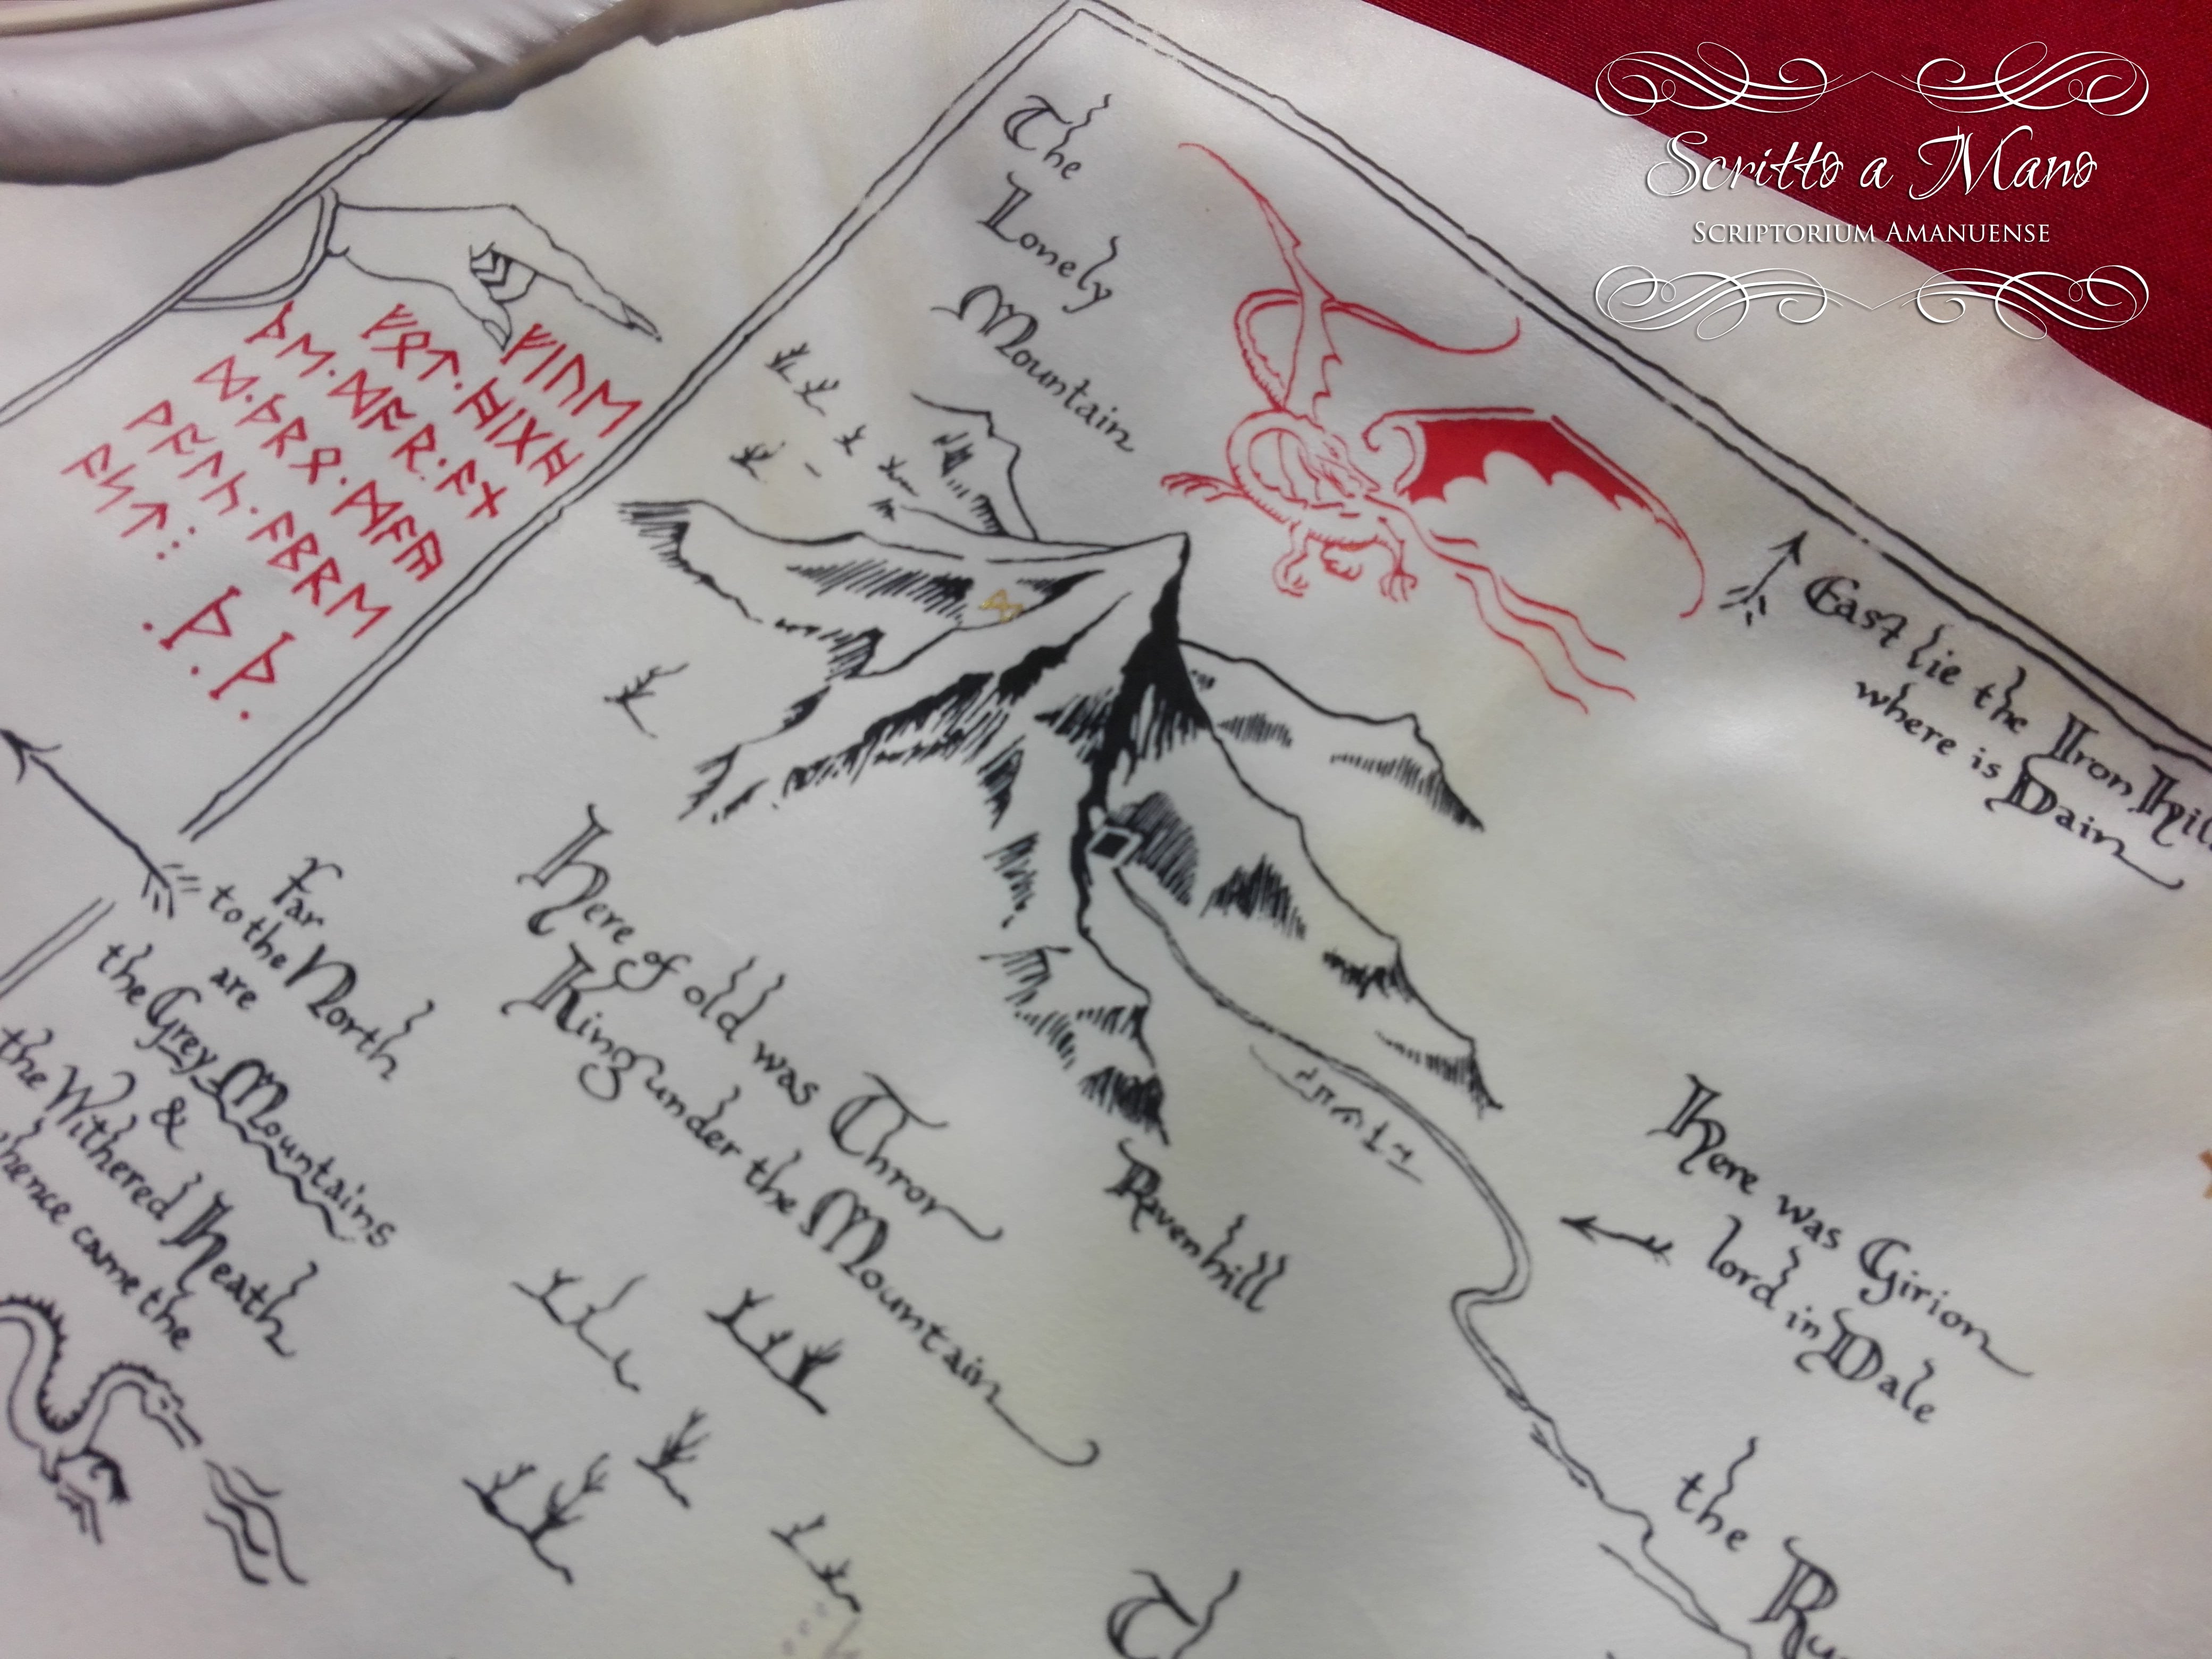 Scritto a Mano
Scriptorium Amanuense
The
Lonely
Mountain
ᚠᛁᚢᛖ
ᚠᛟᛏ·ᚻᛁᚷᚻ
ᚦᛖ·ᛞᚩᚱ·ᚪᚾ
ᛞ·ᚦᚱᛟ·ᛗᚪᚣ
ᚹᚪᛚᚳ·ᚪᛒᚱᛖ
ᚪᛋᛏ
·ᚦ·ᚦ·
East lie the Iron Hil
where is Dain
Far
to the North
are
the Grey Mountains
&
the Withered Heath
hence came the
Here of old was Thror
King under the Mountain
Ravenhill
Here was Girion
lord in Dale
the Ru